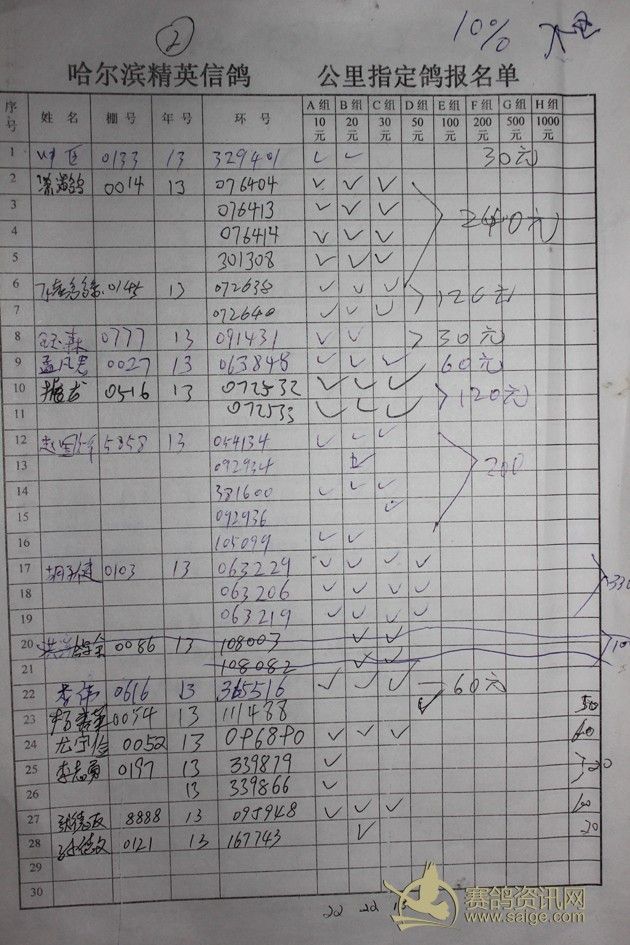 ②
10%
哈尔滨精英信鸽 公里指定鸽报名单
序号 姓 名 棚 号 年 号 环 号 A组 10元 B组 20元 C组 30元 D组 50元 E组 100元 F组 200元 G组 500元 H组 1000元
1 0133 13 329401 ✓ ✓ 30元
2 0014 13 076404 ✓ ✓ ✓
3 076413 ✓ ✓ ✓ 240元
4 076414 ✓ ✓ ✓
5 301308 ✓ ✓ ✓
6 0145 13 072638 ✓ ✓ ✓ 120元
7 072640 ✓ ✓ ✓
8 0777 13 091431 ✓ ✓ 30元
9 孟凡忠 0027 13 063848 ✓ ✓ ✓ 60元
10 0516 13 072532 ✓ ✓ ✓ 120元
11 072533 ✓ ✓ ✓
12 13 054134 ✓ ✓ ✓
13 092934 ✓ 200
14 381600 ✓ ✓ ✓
15 092936 ✓
16 105099 ✓ ✓
17 0103 13 063229 ✓ ✓ ✓ ✓
18 063206 ✓ ✓ ✓ ✓ 330
19 063219 ✓ ✓ ✓ ✓
20 0086 13 108003 ✓ ✓
21 108082 ✓ ✓
22 李伟 0616 13 365516 ✓ ✓ ✓ 60元
23 13 111438 ✓ 50
24 0052 13 ✓ ✓ ✓ 60
25 李志勇 0197 13 339879 ✓ 20
26 13 339866 ✓
27 8888 13 095948 ✓ ✓ ✓ 60
28 0121 13 167743 ✓ 20
29
30
22 22 15
赛鸽资讯网
www.saige.com